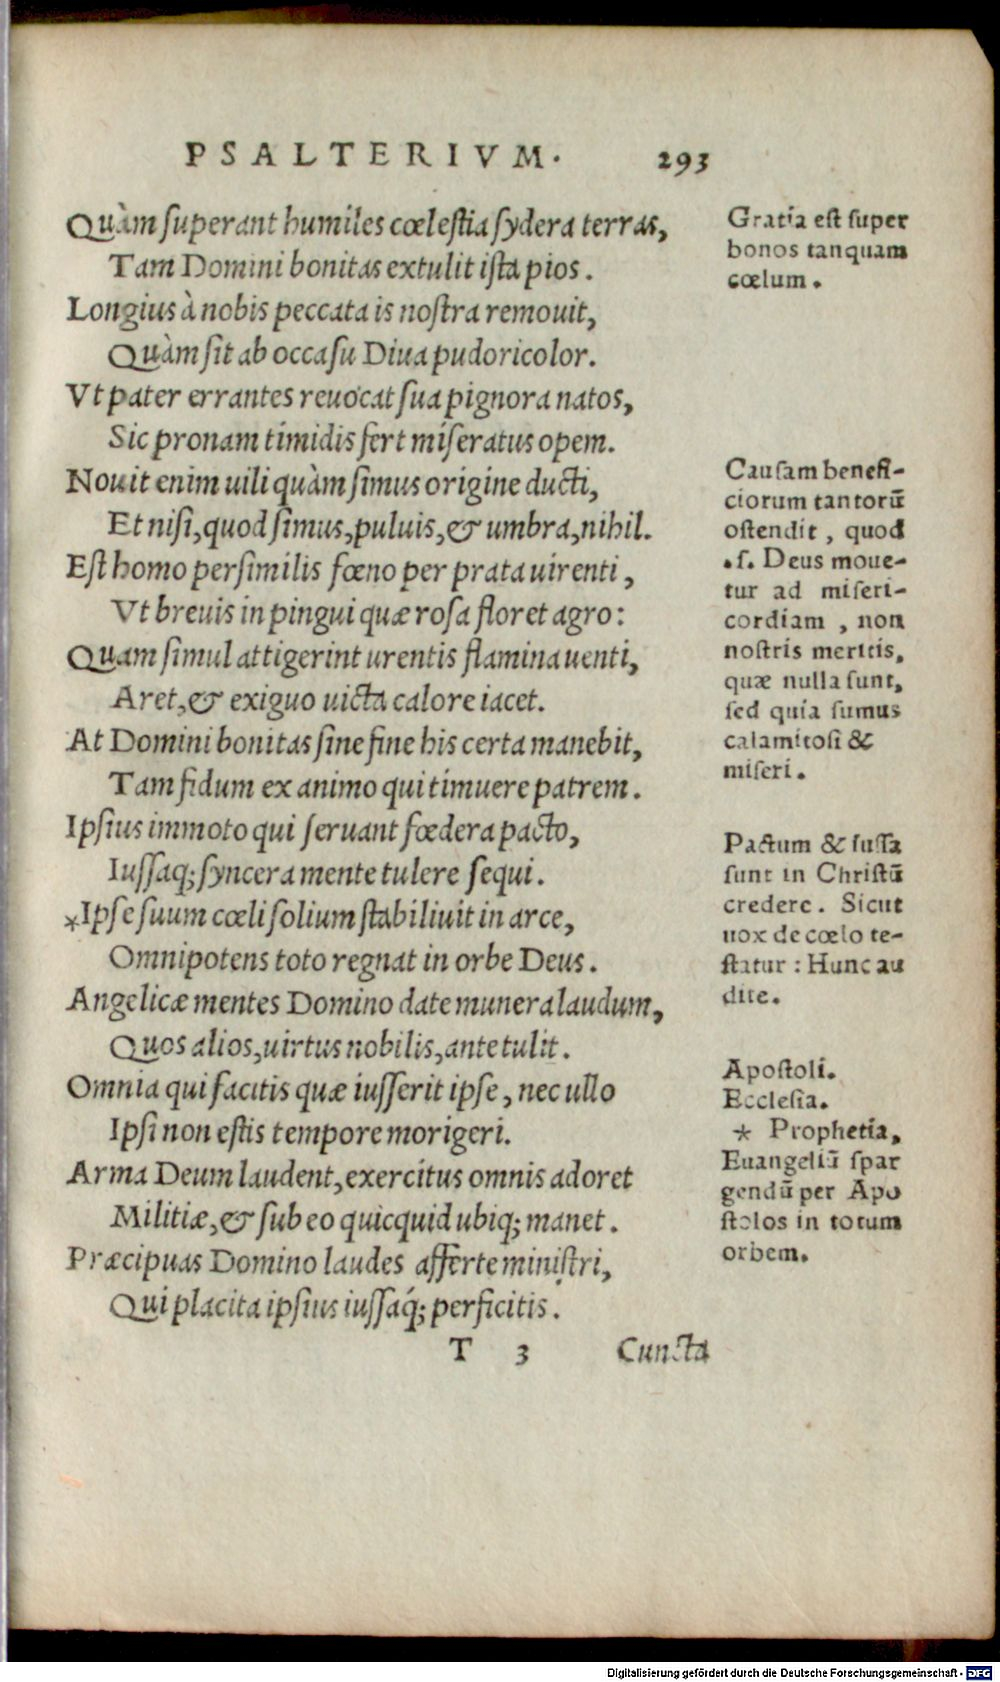 PSALTERIVM. 293
Quàm superant humiles cœlestia sydera terras,
Tam Domini bonitas extulit ista pios.
Longius à nobis peccata is nostra remouit,
Quàm sit ab occasu Diua pudoricolor.
Vt pater errantes reuocat sua pignora natos,
Sic pronam timidis fert miseratus opem.
Nouit enim uili quàm simus origine ducti,
Et nisi, quod simus, puluis, & umbra, nihil.
Est homo persimilis fœno per prata uirenti,
Vt breuis in pingui quæ rosa floret agro:
Quam simul attigerint urentis flamina uenti,
Aret, & exiguo uicta calore iacet.
At Domini bonitas sine fine his certa manebit,
Tam fidum ex animo qui timuere patrem.
Ipsius immoto qui seruant fœdera pacto,
Iussaq; syncera mente tulere sequi.
*Ipse suum cœli solium stabiliuit in arce,
Omnipotens toto regnat in orbe Deus.
Angelicæ mentes Domino date munera laudum,
Quos alios, uirtus nobilis, ante tulit.
Omnia qui facitis quæ iusserit ipse, nec ullo
Ipsi non estis tempore morigeri.
Arma Deum laudent, exercitus omnis adoret
Militiæ, & sub eo quicquid ubiq; manet.
Præcipuas Domino laudes afferte ministri,
Qui placita ipsius iussaq́; perficitis.
T 3 Cuncta
Gratia est super
bonos tanquam
cœlum.
Causam benefi-
ciorum tantorū
ostendit, quod
.s. Deus moue-
tur ad miseri-
cordiam, non
nostris meritis,
quæ nulla sunt,
sed quia sumus
calamitosi &
miseri.
Pactum & iussa
sunt in Christū
credere. Sicut
uox de cœlo te-
statur: Hunc au
dite.
Apostoli.
Ecclesia.
* Prophetia,
Euangeliū spar
gendū per Apo
stolos in totum
orbem.
Digitalisierung gefördert durch die Deutsche Forschungsgemeinschaft - DFG